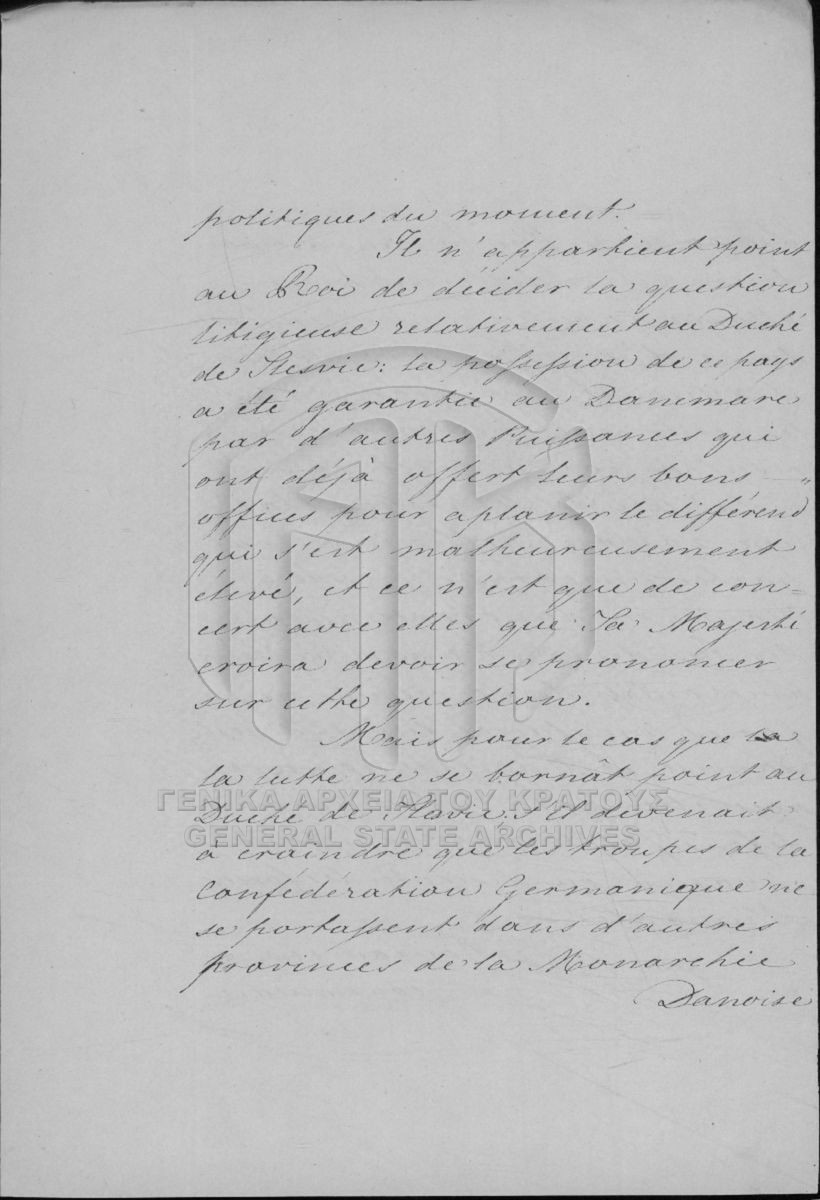 politiques du moment.
Il n'appartient point
au Roi de décider la question
litigieuse relativement au Duché
de Slesvic: la possession de ce pays
a été garantie au Danemarc
par d'autres Puissances qui
ont déjà offert leurs bons
offices pour aplanir le différend
qui s'est malheureusement
élevé, et ce n'est que de con=
cert avec elles que Sa Majesté
croira devoir se prononcer
sur cette question.
Mais pour le cas que la
la lutte ne se bornât point au
Duché de Slavic, s'il devenait
à craindre que les troupes de la
Confédération Germanique ne
se portassent dans d'autres
provinces de la Monarchie
Danoise
ΓΕΝΙΚΑ ΑΡΧΕΙΑ ΤΟΥ ΚΡΑΤΟΥΣ
GENERAL STATE ARCHIVES